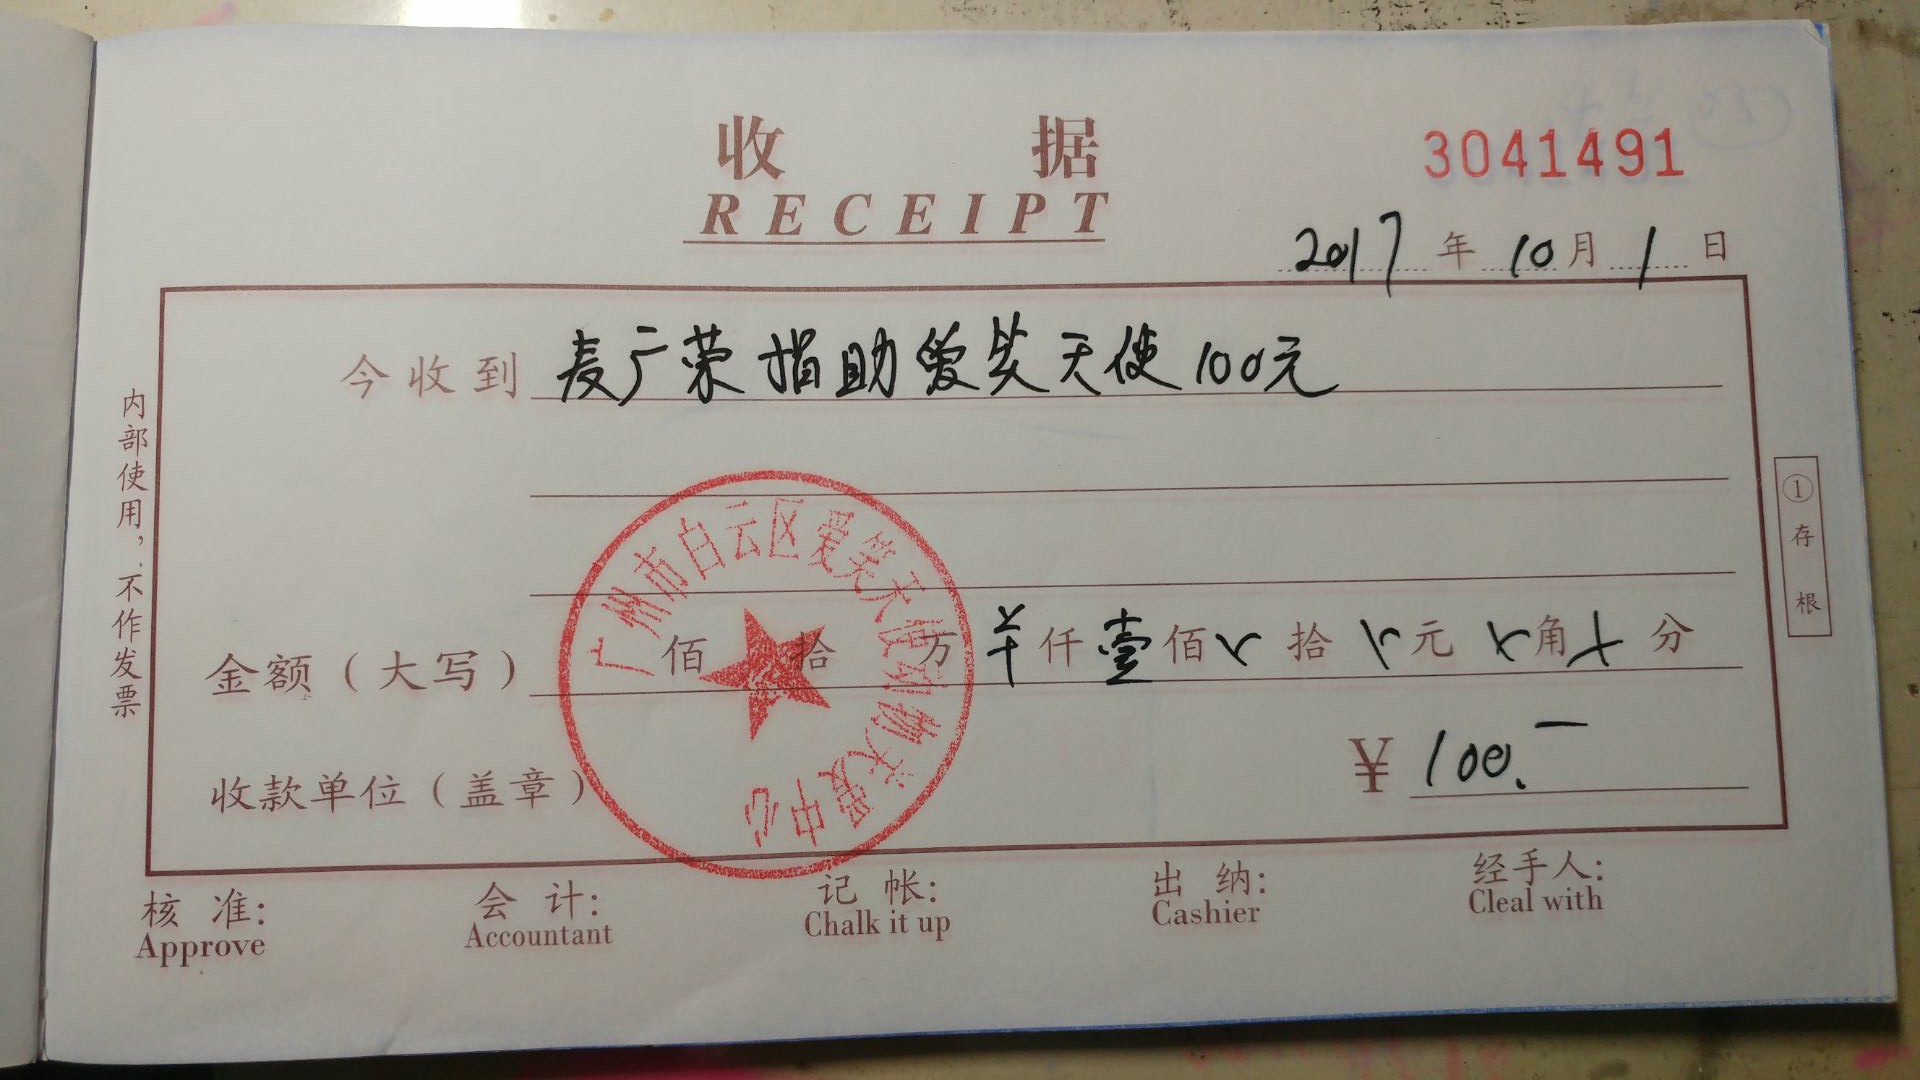 收 据
RECEIPT
3041491
2017 年 10 月 1 日
今收到 麦广荣捐助爱笑天使100元
内部使用，不作发票
①存根
广州市白云区爱笑天使 关爱中心
金额（大写） 佰 拾 万 仟 壹 佰 拾 元 角 分
收款单位（盖章）
¥ 100.—
核 准: 会 计: 记 帐: 出 纳: 经手人:
Approve Accountant Chalk it up Cashier Cleal with